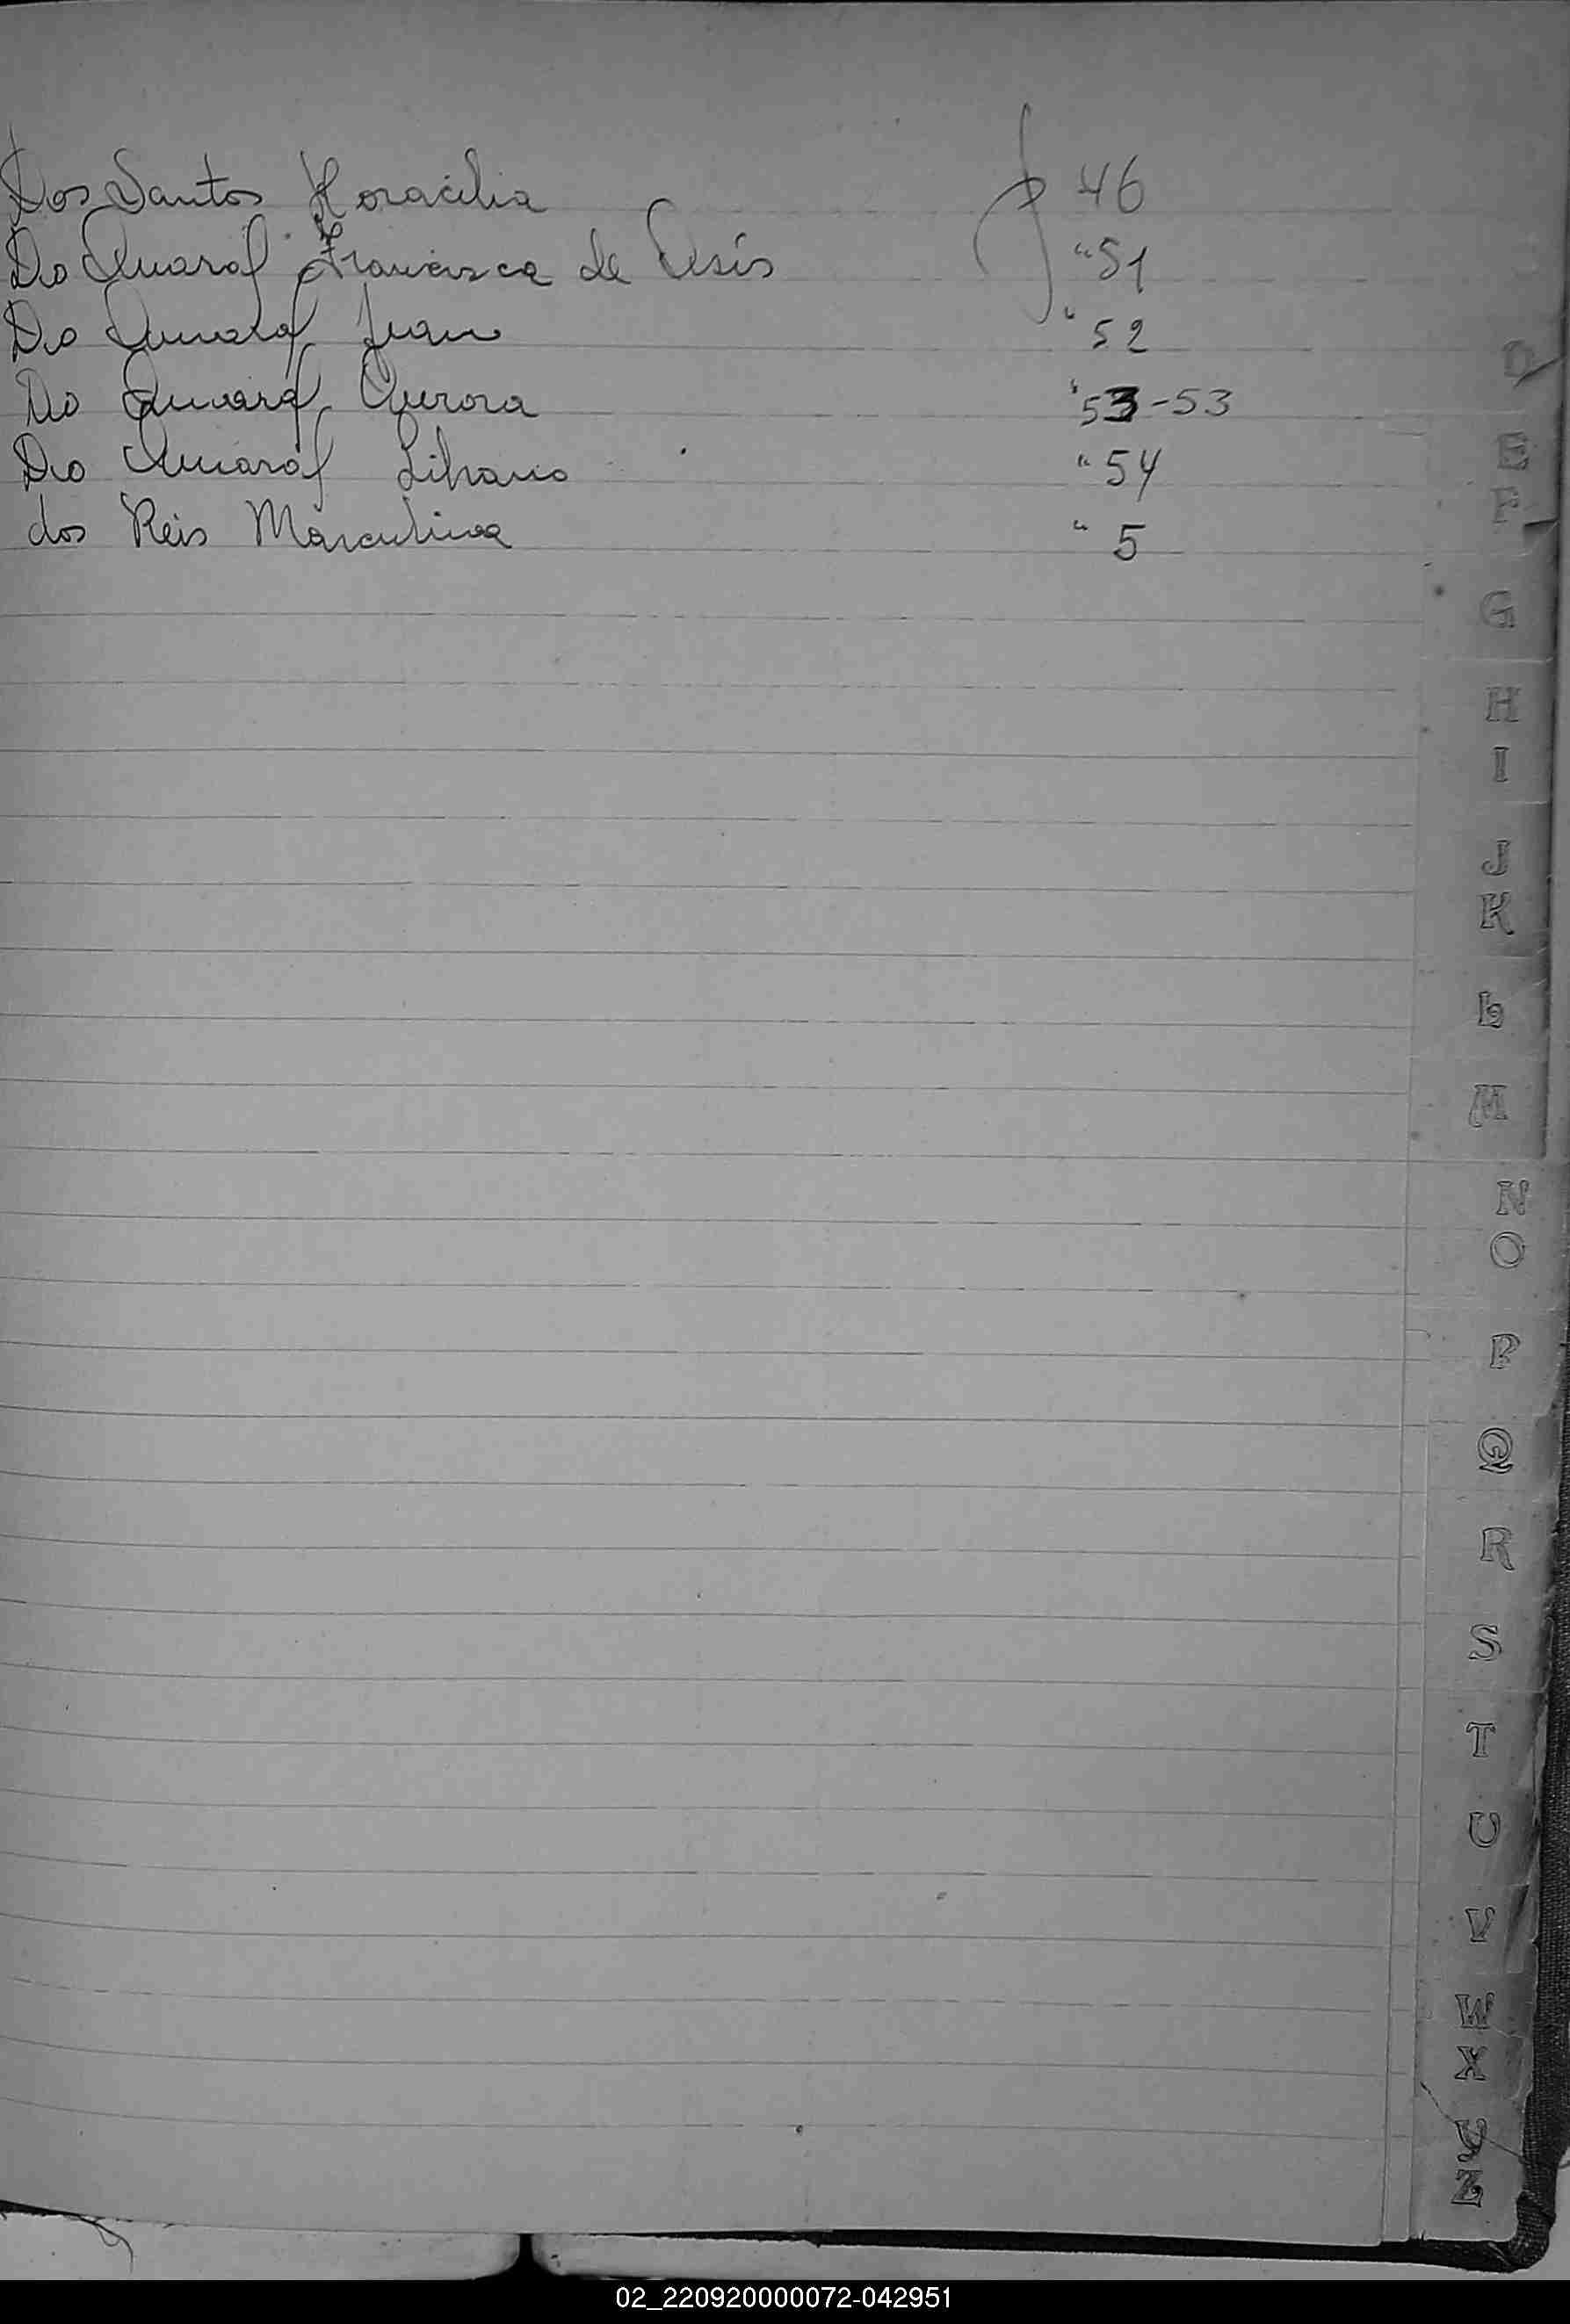 Dos Santos Horacilia f 46
Do Amaral Francisca de Asis " 51
Do Amaral Juan " 52
Do Amaral Aurora " 53-53
Do Amaral Libranio " 54
dos Reis Marculina " 5
D
E
F
G
H
I
J
K
L
M
N
O
P
Q
R
S
T
U
V
W
X
Y
Z
02_220920000072-042951